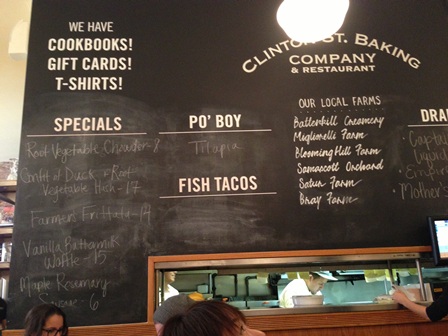 WE HAVE
COOKBOOKS!
GIFT CARDS!
T-SHIRTS!
CLINTON ST. BAKING
COMPANY
& RESTAURANT
SPECIALS
Root Vegetable Chowder-8
Confit of Duck + Root
Vegetable Hash-17
Farmers Frittata-14
Vanilla Buttermilk
Waffle-15
Maple Rosemary
6
PO' BOY
Tilapia
FISH TACOS
OUR LOCAL FARMS
Battenkill Creamery
Migliorelli Farm
Blooming Hill Farm
Samascott Orchard
Satur Farm
Bray Farm
DRA
Capta
Empir
Mother